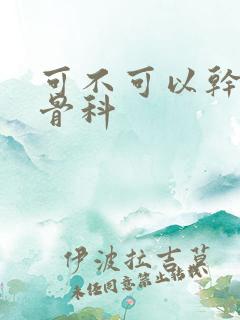 可不可以幹
骨科
伊波拉吉莫
未经同意禁止转载